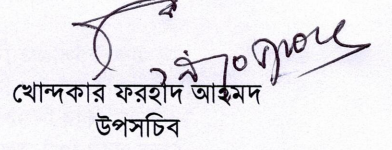 খোন্দকার ফরহাদ আহমদ
উপসচিব